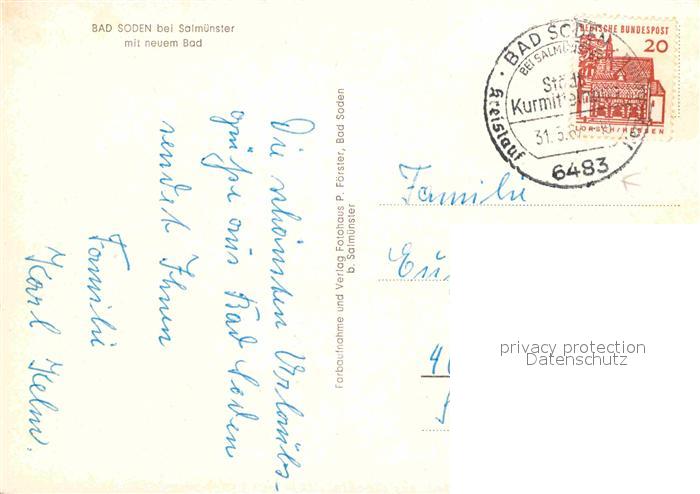 BAD SODEN bei Salmünster
mit neuem Bad
Die schönsten Urlaubs-
grüße aus Bad Soden
sendet Ihnen
Familie
Karl Helm.
Farbaufnahme und Verlag Fotohaus P. Förster, Bad Soden
b. Salmünster
BAD SODEN
BEI SALMÜNSTER
Kurmittel
Kreislauf
31.5.6
6483
DEUTSCHE BUNDESPOST
20
LORSCH/HESSEN
Familie
privacy protection
Datenschutz